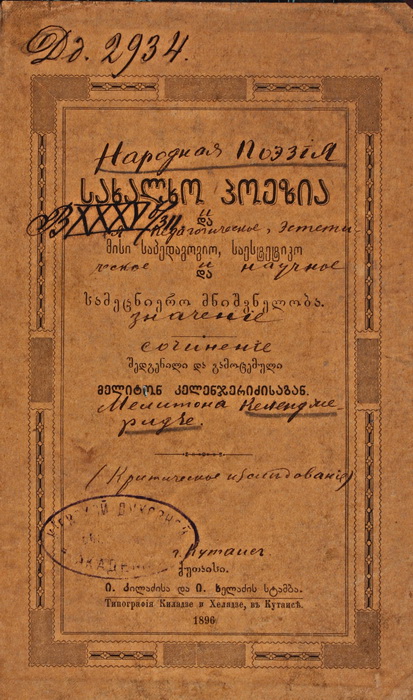 Дд. 2934.
Народная Поэзія
სახალხო პოეზია
და
педагогическое, эстети-
მისი საპედაგოგიო, საესტეტიკო
ческое и научное
და
სამეცნიერო მნიშვნელობა.
значеніе
сочиненіе
შედგენილი და გამოცემული
მელიტონ კელენჯერიძისაგან.
Мелитона Келендже-
ридзе.
(Критическое изслѣдованіе)
ДУХОВНОЙ
АКАДЕМ
г. Кутаис
ქუთაისი.
ი. კილაძისა და ი. ხელაძის სტამბა.
Типографія Киладзе и Хеладзе, въ Кутаисѣ.
1896